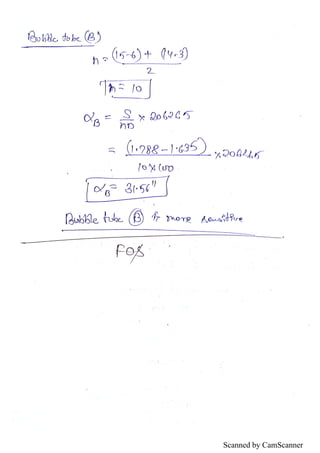 Bubble tube (B)
n = (15-6) + (14-3)
2
n = 10
αB = S/nD × 206265
= (1.788 - 1.635) × 206265
10 × 100
αB = 31.56"
Bubble tube (B) is more sensitive
FOS
Scanned by CamScanner